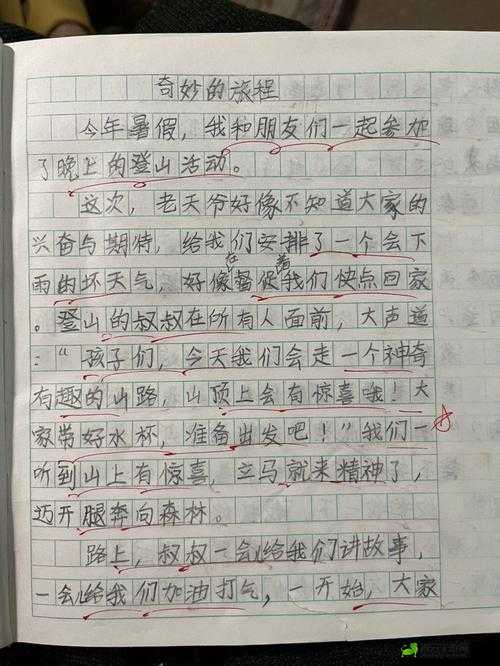 奇妙的旅程
今年暑假，我和朋友们一起参加
了晚上的登山活动。
这次，老天爷好像不知道大家的
兴奋与期待，给我们安排了一个会下
雨的坏天气，好像在督促着我们快点回家
。登山的叔叔在所有人面前，大声道
：“孩子们，今天我们会走一个神奇
有趣的山路，山顶上会有惊喜哦！大
家带好水杯，准备出发吧！”我们一
听到山上有惊喜，立马就来精神了，
迈开腿奔向森林。
路上，叔叔一会给我们讲故事，
一会给我们加油打气，一开始，大家